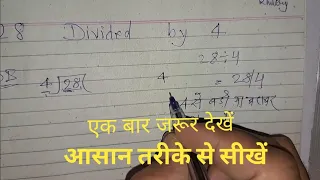 28 Divided by 4
28÷4
4)28( 4 = 28/4
4 से बड़ी या बराबर
एक बार जरूर देखें
आसान तरीके से सीखें